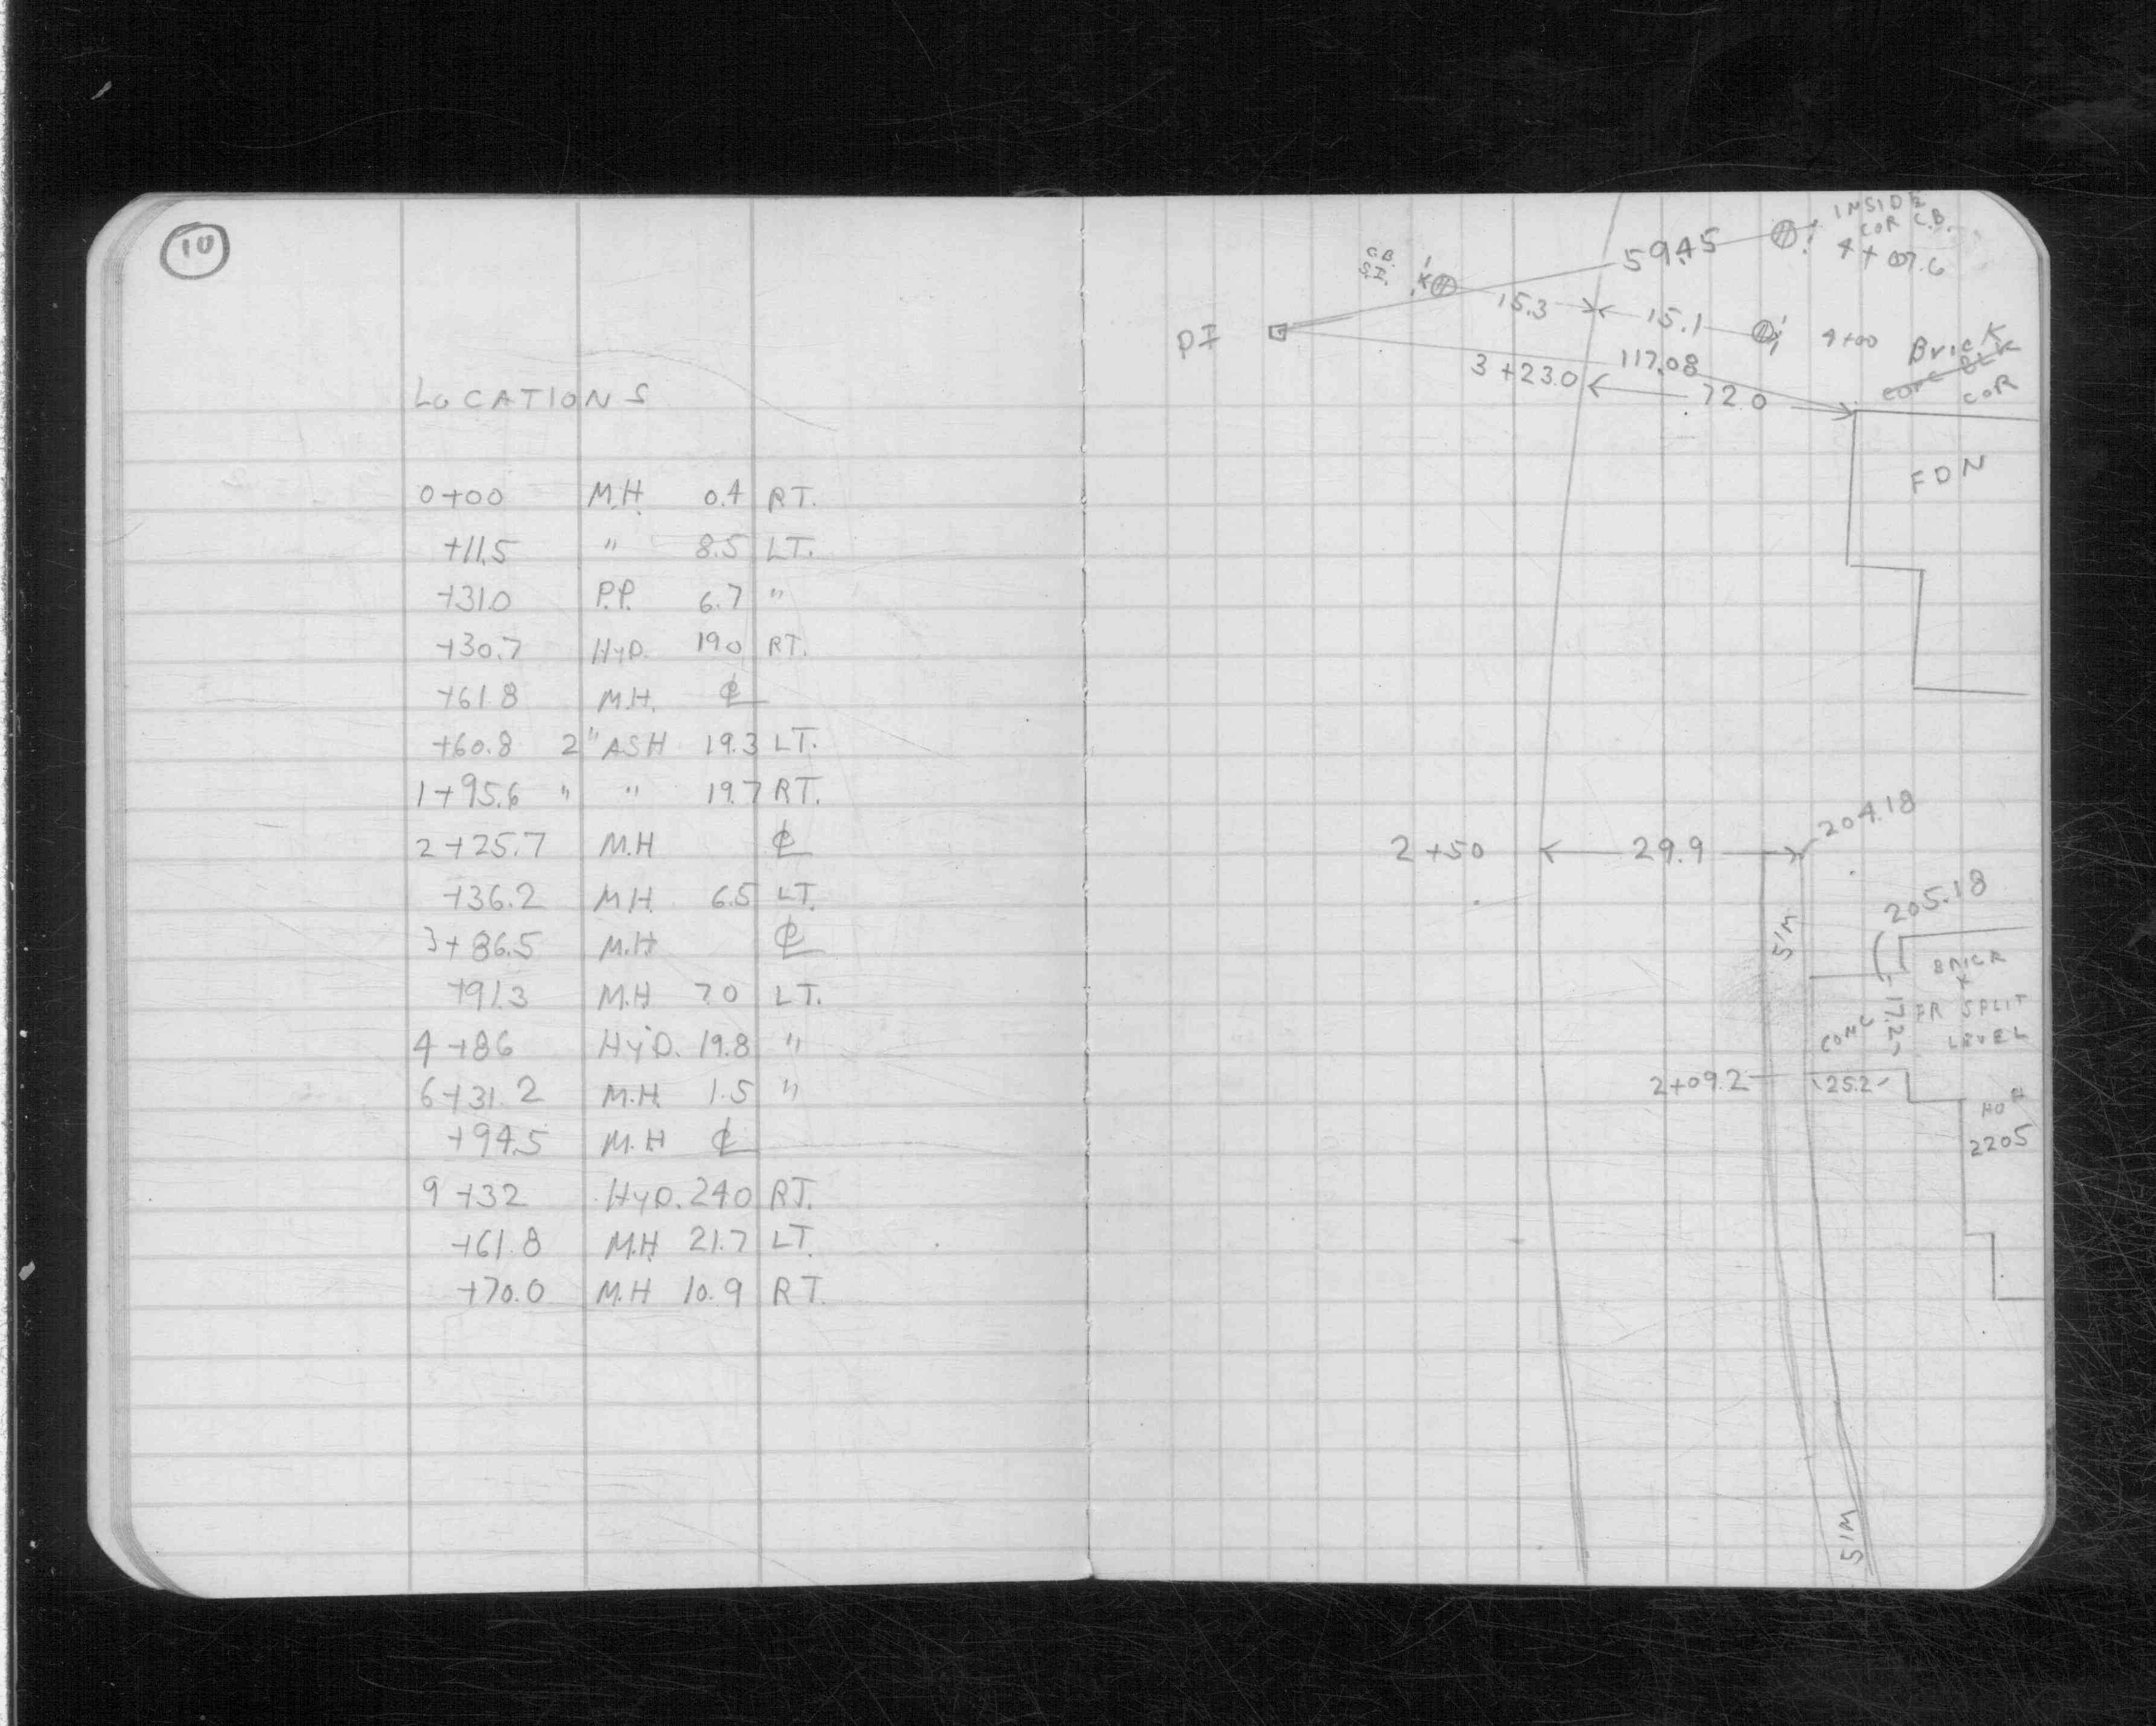 10
LOCATIONS
0+00 M.H. 0.4 RT.
+11.5 " 8.5 LT.
+31.0 P.P. 6.7 "
+30.7 HYD. 19.0 RT.
+61.8 M.H. ℄
+60.8 2" ASH 19.3 LT.
1+95.6 " " 19.7 RT.
2+25.7 M.H ℄
+36.2 M.H. 6.5 LT.
3+86.5 M.H ℄
+91.3 M.H 7.0 LT.
4+86 HYD. 19.8 "
6+31.2 M.H. 1.5 "
+94.5 M.H ℄
9+32 HYD. 24.0 RT.
+61.8 M.H. 21.7 LT.
+70.0 M.H 10.9 RT.
INSIDE
COR C.B.
4+07.6
59.45
C.B.
S.I.
15.3
15.1
4+00
PI
117.08
Brick
CONC BLK
COR
3+23.0
72.0
FDN
204.18
2+50
29.9
205.18
S/W
BRICK
+
FR SPLIT
LEVEL
CONC
17.2
2+09.2
25.2
HO #
2205
S/W